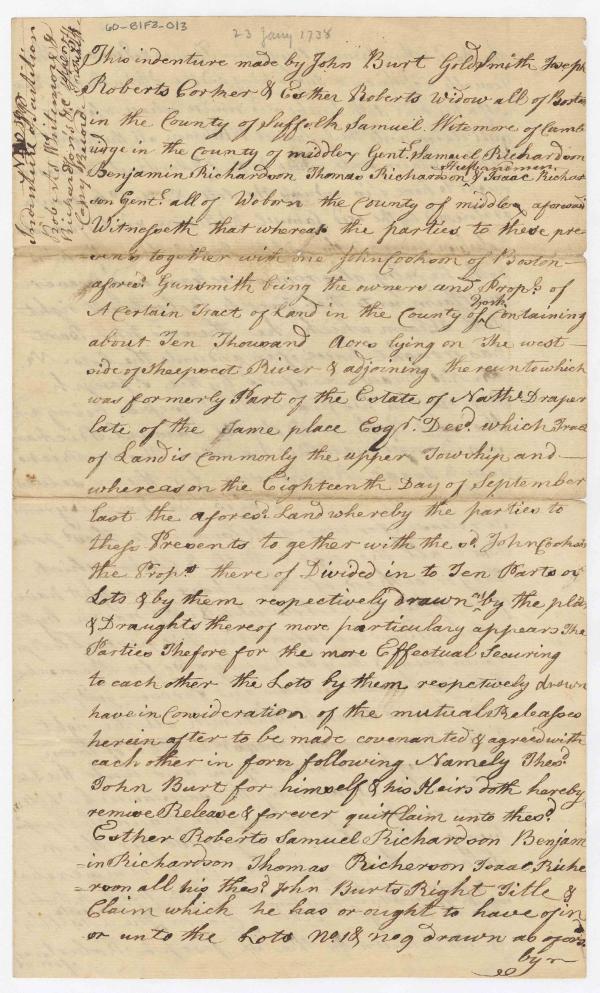 60-81F3-013
23 Jany 1738
Indenture of Partition
Roberts Witemore &
Richardsons &c
Copy
This indenture made by John Burt Goldsmith Joseph
Roberts Corker & Esther Roberts Widow all of Boston
in the County of Suffolk Samuel Witemore of Camb
ridge in the County of middlex Gentn. Samuel Richardson
Benjamin Richardson Thomas Richardson Husbandmen & Isaac Richard
son Gentn. all of Woborn the County of middlex aforesaid
Witnesseth that whereas the parties to these pre-
sents together with one John Cookson of Boston
aforesd. Gunsmith being the owners and Propts. of
A Certain Tract of Land in the County of York Containing
about Ten Thousand Acres lying on The west
side of Sheepscot River & adjoining thereunto which
was formerly Part of the Estate of Nathl. Draper
late of the Same place Esqr. Decd. which Tract
of Land is Commonly the upper Township and
whereas on the Eighteenth Day of September
last the aforesd. Land whereby the parties to
these Presents to gether with the sd. John Cookson
the Propts there of Divided in to Ten Parts or
Lots & by them respectively drawn as by the plan
& Draughts thereof more particulary appears The
Parties Thefore for the more Effectual Securing
to each other the Lots by them respctively drawn
have in Consideration of the mutual Releases
herein after to be made covenanted & agreed with
each other in form following Namely The sd.
John Burt for himself & his Heirs doth hereby
remise Release & forever quitClaim unto the sd.
Esther Roberts Samuel Richardson Benjam
in Richardson Thomas Richerson Isaac Riche
rson all his the sd. John Burts Right Title &
Claim which he has or ought to have of in
or unto the Lots No. 1 & no 9 drawn as aforsd.
by